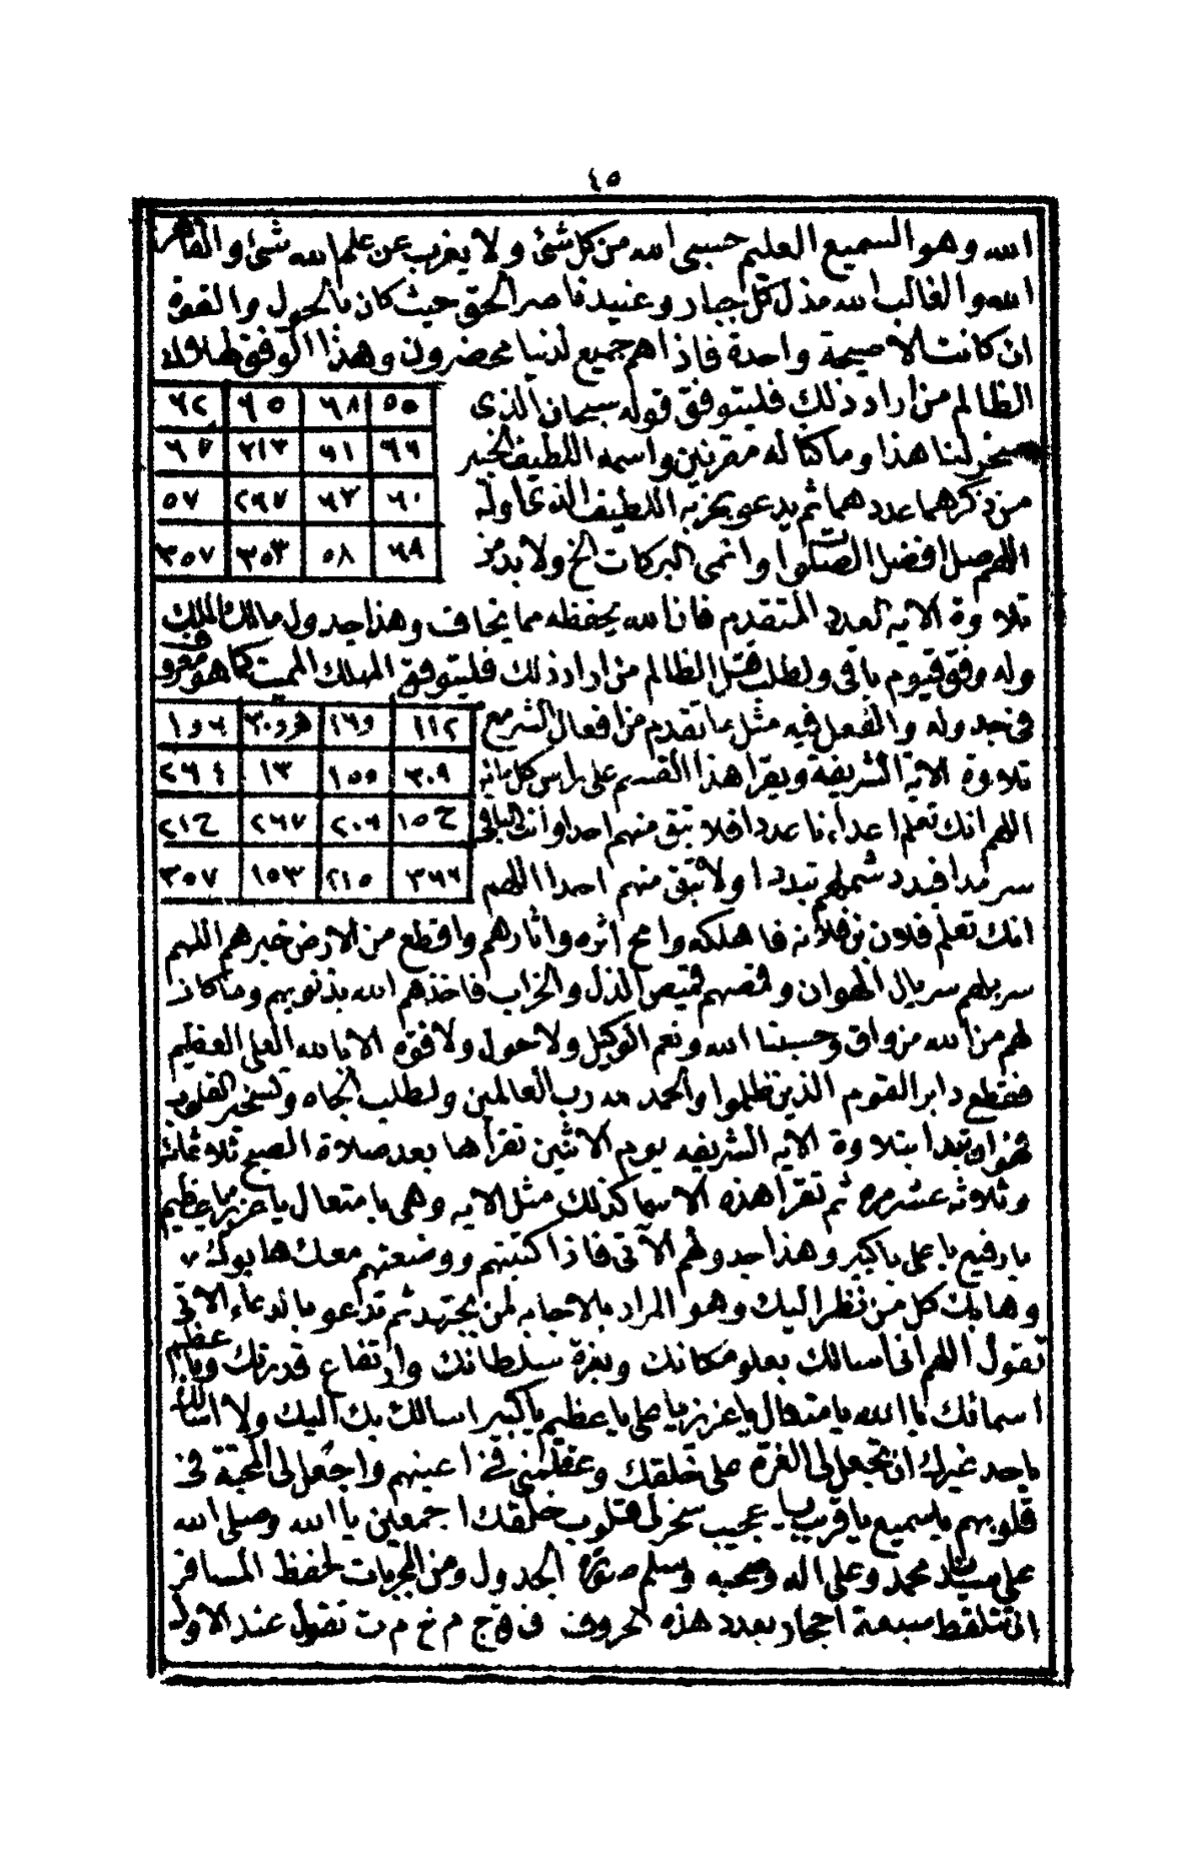 ٤٥
الله وهو السميع العليم حسبى الله من كل شئ ولا يغرب عن علم الله شئ والقاهر
الله والغالب الله مذل كل جبار وعنيد ناصر الحق حيث كان بالحول والقوة
ان كانت الا صيحة واحدة فاذا هم جميع لدينا محضرون وهذا الوفق لهلاك
الظالم من اراد ذلك فليتوفق قوله سبحان الذى
سخر لنا هذا وما كنا له مقرنين واسمه اللطيف الخبير
من ذكرهما عددهما ثم يدعى بحزبه اللطيف الذى اوله
اللهم صل افضل الصلوا وانمى البركات الخ ولا بد من
٥٥ ٦٨ ٦٥ ٦٢
٦٦ ٦١ ٢١٣ ٦٧
٦٠ ٦٣ ٢٦٧ ٥٧
٦٩ ٥٨ ٣٥٣ ٣٥٧
تلاوة الايه لعدد المتقدم فان الله يحفظه مما يخاف وهذا جدول مالك الملك
وله وفق قيوم باقى ولطلب قتل الظالم من اراد ذلك فليتوفق المهلك المميت كما هو معروف
فى جدوله والفعل فيه مثل بما تقدم من افعال الشر مع
تلاوة الاية الشريفة ويقرا هذا القسم على راس كل مائه
اللهم انك تعلم اعداءنا عددا فلا تبق منهم احدا وانت الباقى
سرمدا فبدد شملهم تبددا ولا تبق منهم احدا اللهم
١١٢
٣٠٩ ١٥٥ ١٣ ٢٦٤
٢٠٦ ٢٦٧
٣٦٦ ٢١٥ ١٥٣ ٣٥٧
انك تعلم فلان بن فلانه فاهلكه وامح اثره واثارهم واقطع من الارض خبرهم اللهم
سربلهم سربال الهوان وقمصهم قميص الذل والخراب فاخذهم الله بذنوبهم وما كان
لهم من الله من واق وحسبنا الله ونعم الوكيل ولا حول ولا قوة الا بالله العلى العظيم
فقطع دابر القوم الذين ظلموا والحمد لله رب العالمين ولطلب الجاه وتسخير القلوب
فهو ان تبدا بتلاوة الايه الشريفه يوم الاثنين تقرأها بعد صلاة الصبح ثلاثمائه
وثلاثه عشر مره ثم تقرا هذه الاسما كذلك مثل الايه وهى يا متعال يا عزيز يا عظيم
يا رفيع يا على يا كبير وهذا جدولهم الآتى فاذا كتبتهم ووضعتهم معك هابوك
وهابك كل من نظر اليك وهو المراد بالاجابه لمن يجتهد ثم تدعو بالدعاء الاتى
تقول اللهم انى اسالك بعلو مكانك وبعزة سلطانك وارتفاع قدرتك وباا عظيم
اسمائك يا الله يا متعال يا عزيز يا على يا عظيم يا كبير اسالك بك اليك ولا اسالك
باحد غيرك ان تجعل لى العزة على خلقك وعظمنى فى اعينهم واجعل لى المحبة فى
قلوبهم يا سميع يا قريب يا مجيب سخر لى قلوب خلقك اجمعين يا الله وصلى الله
على سيدنا محمد وعلى اله وصحبه وسلم صورة الجدول ومن المجربات لحفظ المسافر
ان تلقط سبعة احجار بعدد هذه الحروف ف ق ج م خ م ت تقول عند الاول